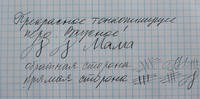 Прекрасное тонкопишущее
перо. Вкусное
З З З Мама
обратная сторона
прямая сторона